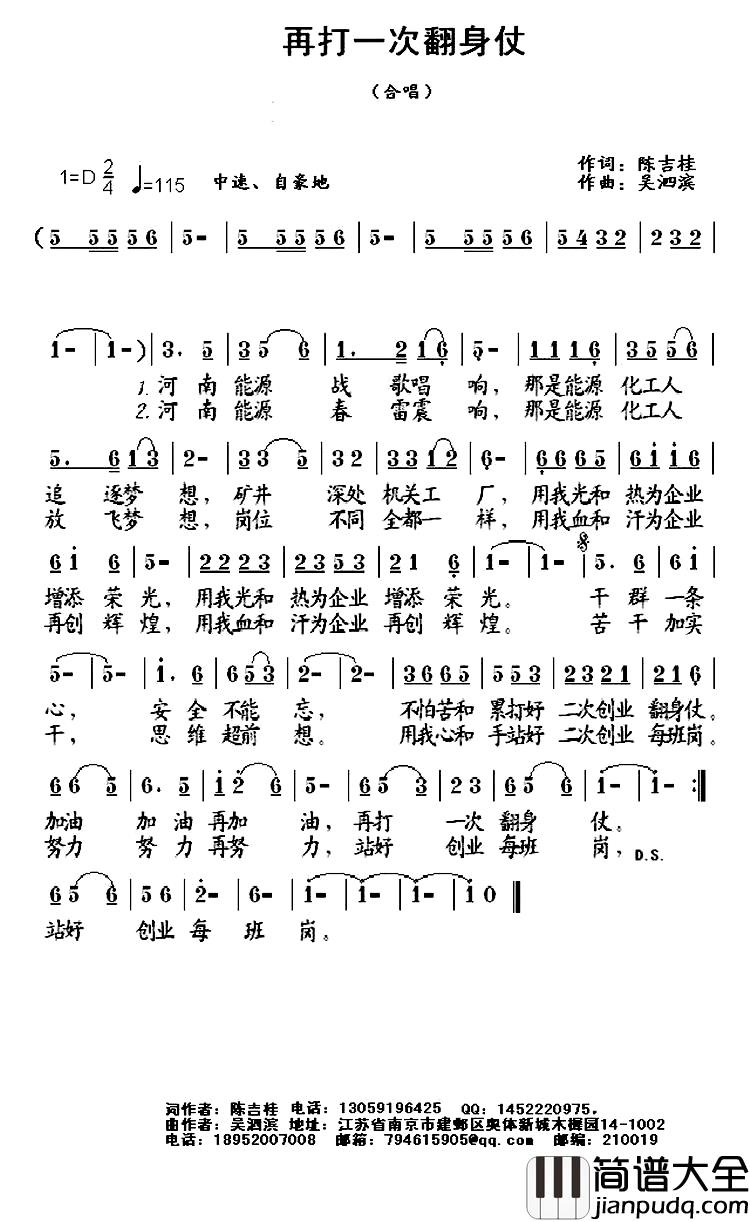 再打一次翻身仗
（合唱）
1=D 2/4 ♩=115 中速、自豪地
作词：陈吉桂
作曲：吴泗滨
(5 5556 | 5- | 5 5556 | 5- | 5 5556 | 5432 | 232 |
1- | 1- ) | 3. 5 | 35 6 | 1. 216 | 5- | 1116 | 3556 |
1.河南 能源 战 歌唱 响，那是能源 化工人
2.河南 能源 春 雷震 响，那是能源 化工人
5. 613 | 2- | 33 5 | 32 | 3312 | 6- | 6665 | 6116 |
追 逐梦 想，矿井 深处 机关工 厂，用我光和 热为企业
放 飞梦 想，岗位 不同 全都一 样，用我血和 汗为企业
61 6 | 5- | 2223 | 2353 | 21 6 | 1- | 1- | 5. 6 | 61 |
增添 荣 光，用我光和 热为企业 增添 荣 光。 干 群 一条
再创 辉 煌，用我血和 汗为企业 再创 辉 煌。 苦 干 加实
5- | 5- | 1. 6 | 653 | 2- | 2- | 3665 | 553 | 2321 | 216 |
心， 安 全 不能 忘， 不怕苦和 累打好 二次创业 翻身仗。
干， 思 维 超前 想。 用我心和 手站好 二次创业 每班岗。
66 5 | 6. 5 | 12 6 | 5- | 65 5 | 23 | 65 6 | 1- | 1- :‖
加油 加 油 再加 油，再打 一次 翻身 仗。
努力 努 力 再努 力，站好 创业 每班 岗，D.S.
65 6 | 56 | 2- | 6- | 1- | 1- | 1- | 10 ‖
站好 创业 每 班 岗。
词作者：陈吉桂 电话：13059196425 QQ：1452220975．
曲作者：吴泗滨 地址：江苏省南京市建邺区奥体新城木樨园14-1002
电话：18952007008 邮箱：794615905@qq.com 邮编：210019
简谱大全
jianpudq.com